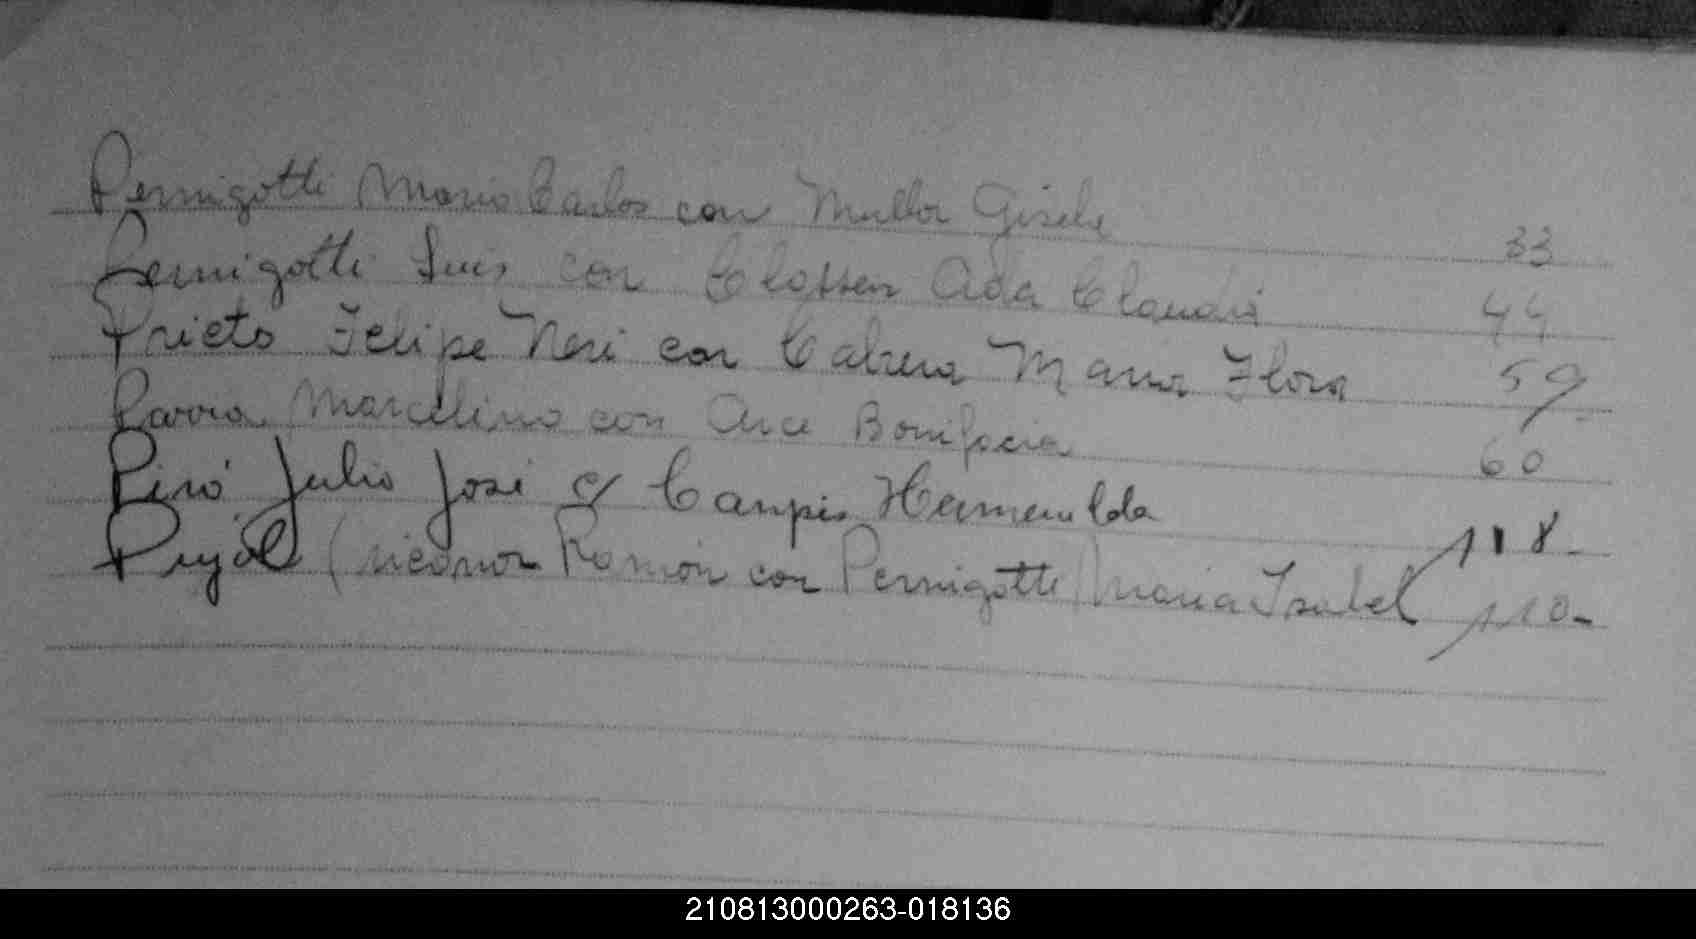 Pernigotti Mario Carlos con Muller Gisela 33
Pernigotti Luis con Clossen Ada Claudia 44
Prieto Felipe Neri con Cabrera Maria Flora 59
Parra Marcelino con Arce Bonifacia 60
Piró Julio José c/ Campis 118-
Pujol (Nicanor Ramón con Pernigotti Maria Isabel 110-
210813000263-018136